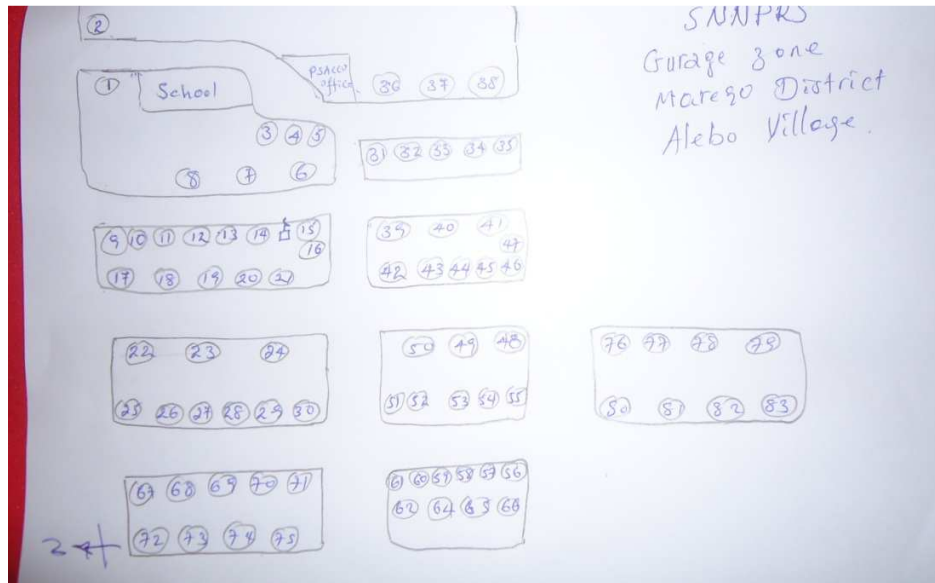 SNNPRS
Gurage zone
Mareqo District
Alebo Village.
2
1
School
PSACCO office
36 37 38
3 4 5
8 7 6
31 32 33 34 35
9 10 11 12 13 14 15
16
17 18 19 20 21
39 40 41
47
42 43 44 45 46
22 23 24
25 26 27 28 29 30
50 49 48
51 52 53 54 55
76 77 78 79
80 81 82 83
67 68 69 70 71
72 73 74 75
61 60 59 58 57 56
62 64 65 66